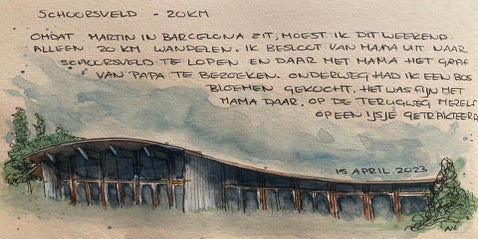 SCHOORSVELD - 20KM
OMDAT MARTIN IN BARCELONA ZIT, MOEST IK DIT WEEKEND
ALLEEN 20 KM WANDELEN. IK BESLOOT VAN MAMA UIT NAAR
SCHOORSVELD TE LOPEN EN DAAR MET MAMA HET GRAF
VAN PAPA TE BEZOEKEN. ONDERWEG HAD IK EEN BOS
BLOEMEN GEKOCHT. HET WAS FIJN MET
MAMA DAAR. OP DE TERUGWEG MEZELF
OP EEN IJSJE GETRAKTEERD
15 APRIL 2023